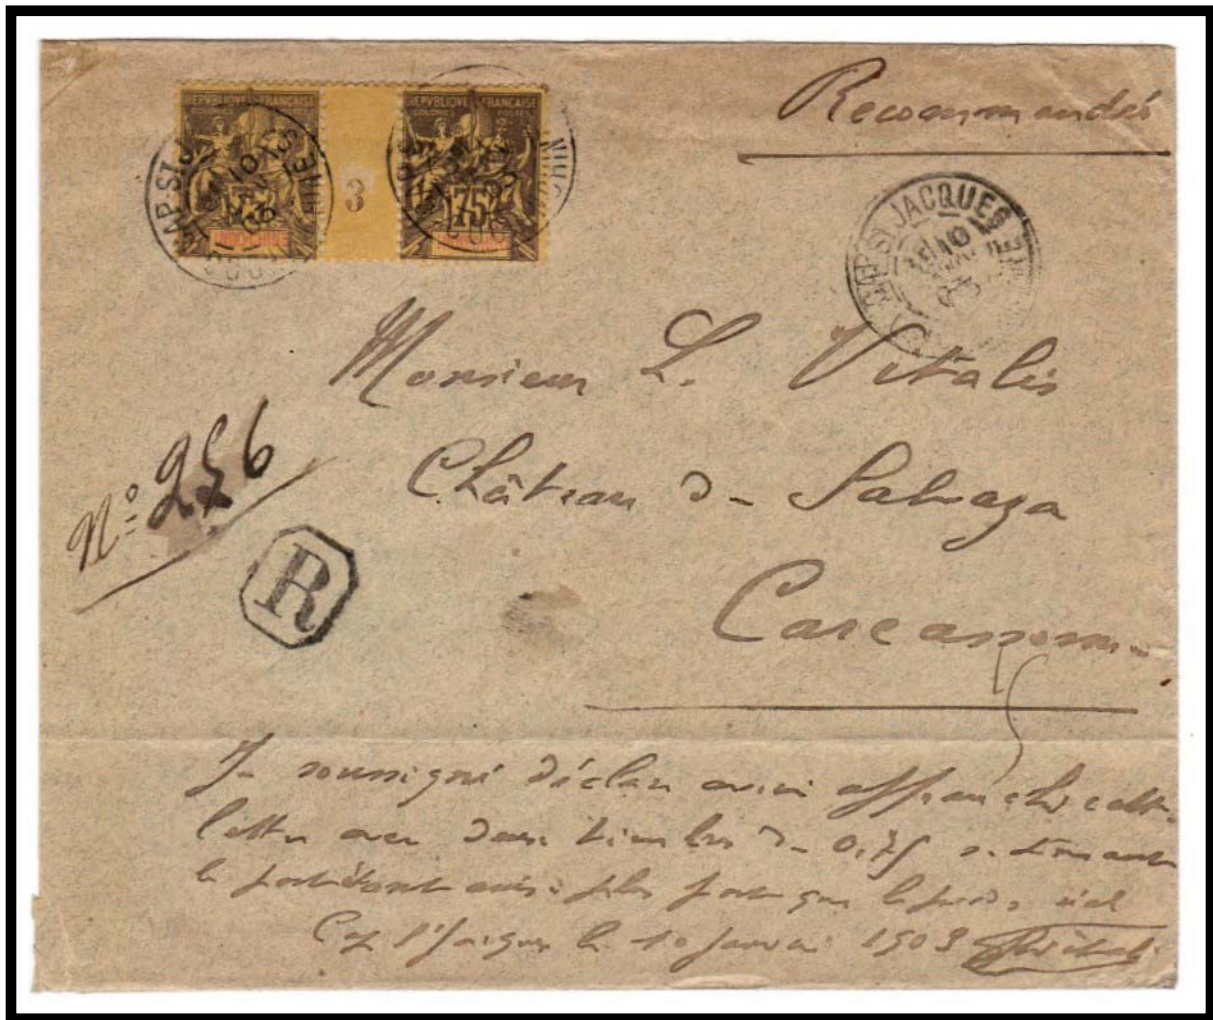 REPVBLIQVE FRANÇAISE REPVBLIQVE FRANÇAISE
75 3 75
Recommandé
CAP ST JACQUES
Monsieur L. Vitalis
Château de Salvaza
Carcassonne
No 256
R
Je soussigné déclare avoir affranchi cette
lettre avec deux timbres de 0,75
le port étant ainsi plus fort que le poids réel
Cap St Jacques le 10 Janvier 1903